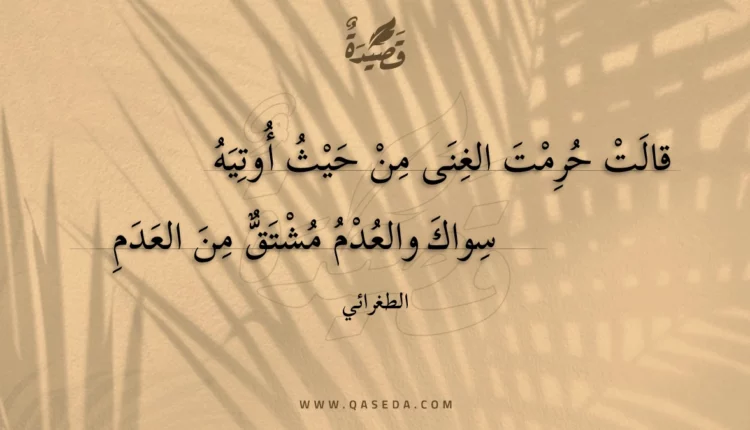 قَصِيْدَةٌ
قالَتْ حُرِمْتَ الغِنَى مِنْ حَيْثُ أُوتِيَهُ
سِواكَ والعُدْمُ مُشْتَقٌّ مِنَ العَدَمِ
الطغرائي
WWW.QASEDA.COM